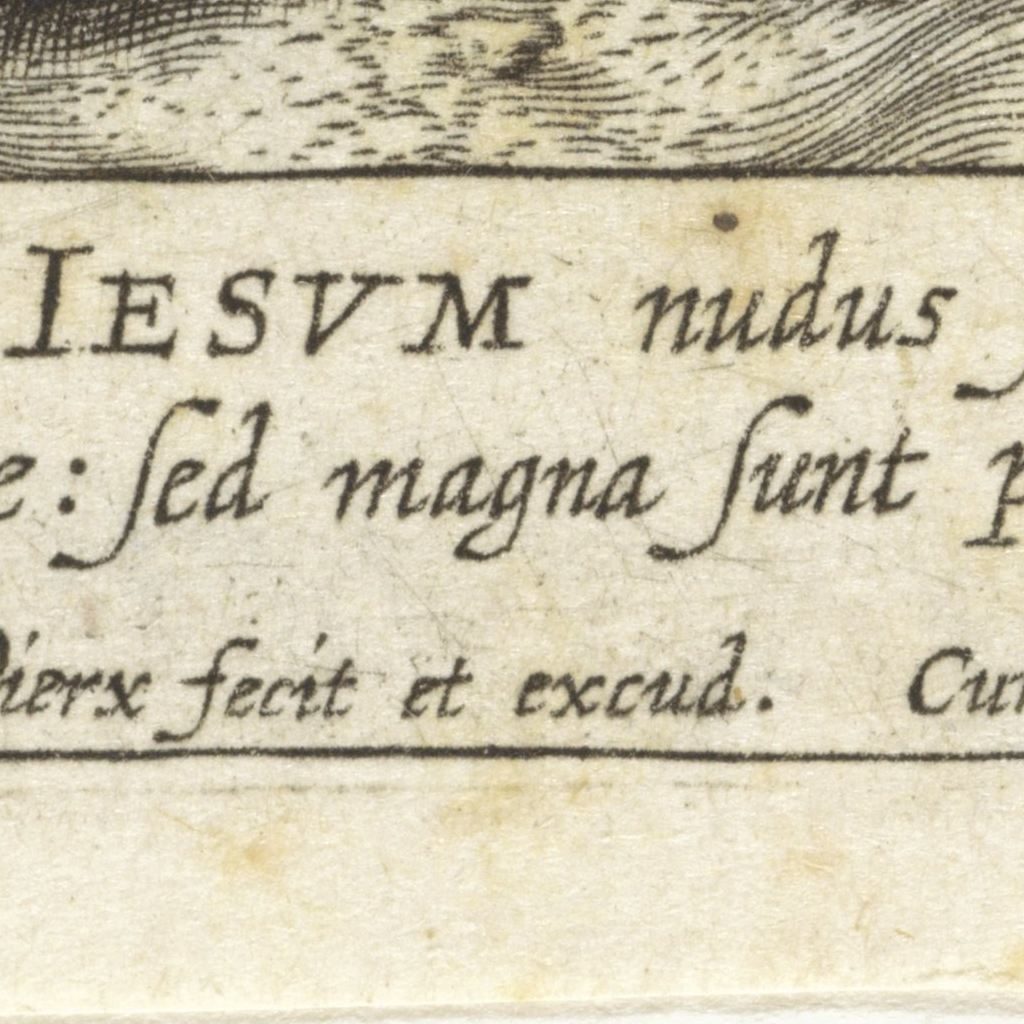 IESVM nudus
e: ſed magna ſunt p
ierx fecit et excud. Cu